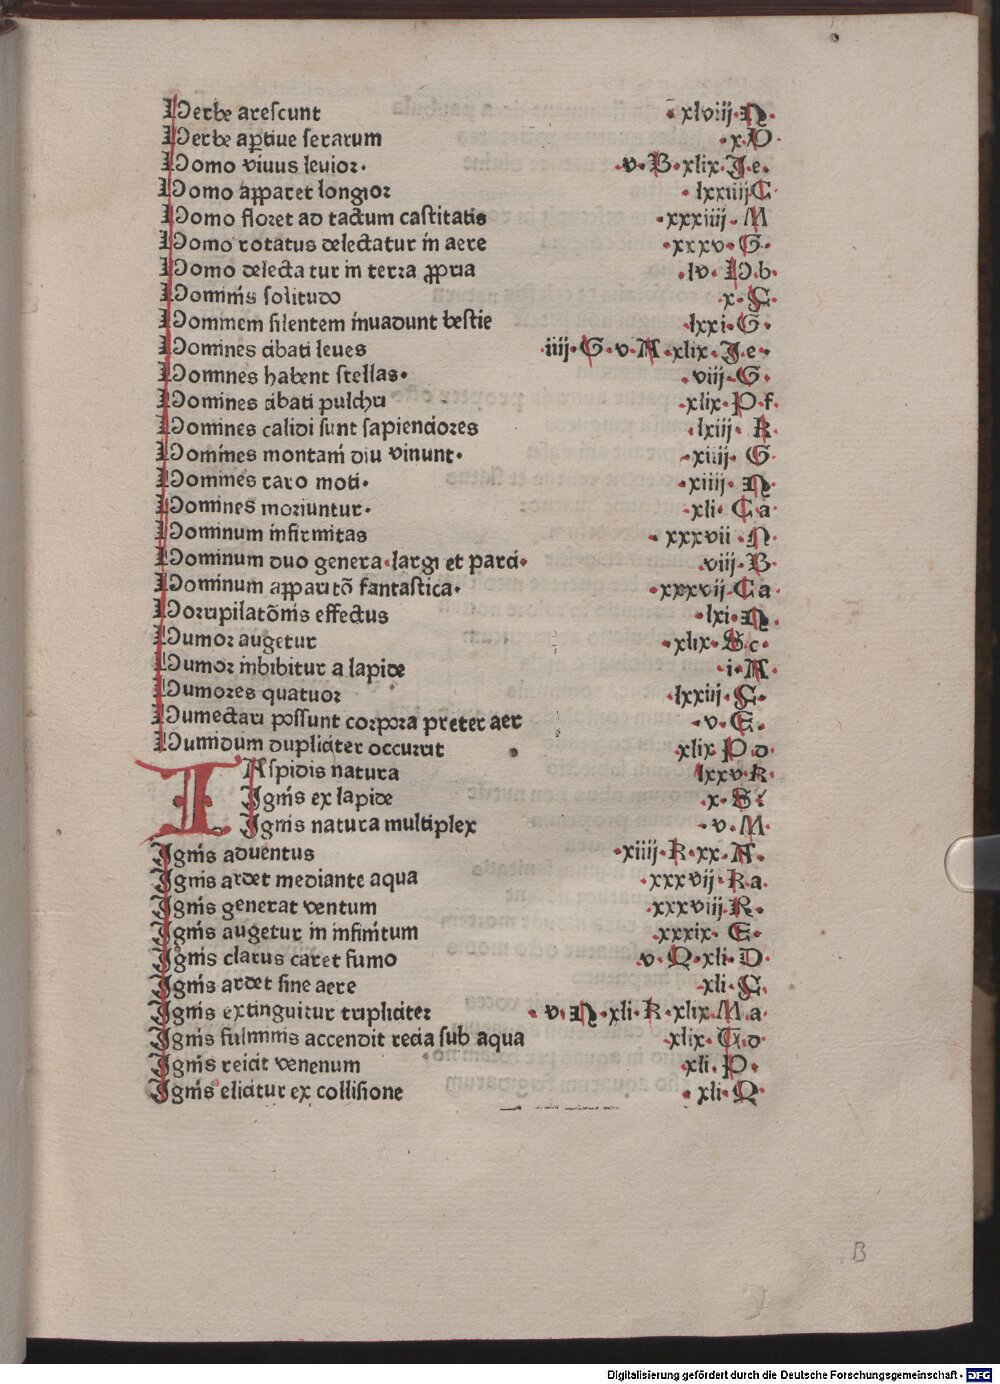 Herbe arescunt · xlviij · N ·
Herbe aꝑtiue serarum · x · D ·
Homo viuus leuior · · v · B · xlix · I e ·
Homo apparet longior · lxxiiij C ·
Homo floret ad tactum castitatis · xxxiiij · M
Homo rotatus delectatur in aere · xxxv · G ·
Homo delecta tur in terra ꝓpria · lv · H b ·
Hominis solitudo · x · S ·
Hominem silentem inuadunt bestie · lxxi · G ·
Homines cibati leues · iiij · G · v · A · xlix · I e ·
Homines habent stellas · · viij · G ·
Homines cibati pulchri · xlix · P f ·
Homines calidi sunt sapienciores · lxiij · R ·
Homines montani diu viuunt · · xiiij · G ·
Homines raro moti · · xiiij · N ·
Homines moriuntur · · xli · C a ·
Hominum infirmitas · xxxvii · N ·
Hominum duo genera · largi et parci · · viij · B ·
Hominum apparitō fantastica · · xxxvij · C a ·
Horripilatōnis effectus · lxi · N ·
Humor augetur · xlix · S c ·
Humor inbibitur a lapide · i · A ·
Humores quatuor · lxxiij · S ·
Humectari possunt corpora preter aer · v · E ·
Humidum dupliciter occurrit · xlix · P d ·
IAspidis natura · lxxv · R ·
Ignis ex lapide · x · S ·
Ignis natura multiplex · v · M ·
Ignis aduentus · xiiij · R · xx · A ·
Ignis ardet mediante aqua · xxxvij · R a ·
Ignis generat ventum · xxxviij · R ·
Ignis augetur in infinitum · xxxix · E ·
Ignis clarus caret fumo · v · Q · xli · D ·
Ignis ardet sine aere · xli · S ·
Ignis extinguitur tripliciter · v · N · xli · R · xlix · M a ·
Ignis fulminis accendit recia sub aqua · xlix · T d ·
Ignis reicit venenum · xli · P ·
Ignis elicitur ex collisione · xli · Q ·
B
Digitalisierung gefördert durch die Deutsche Forschungsgemeinschaft - DFG